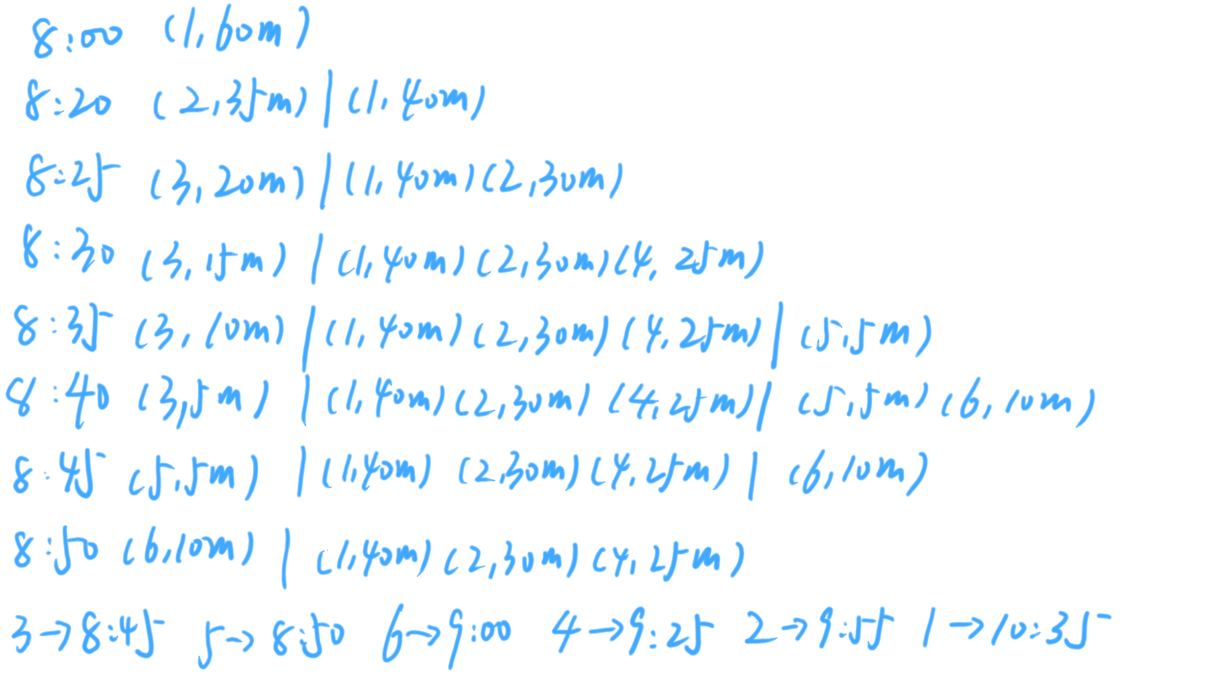 8:00 (1,60m)
8:20 (2,35m) | (1,40m)
8:25 (3,20m) | (1,40m)(2,30m)
8:30 (3,15m) | (1,40m)(2,30m)(4,25m)
8:35 (3,10m) | (1,40m)(2,30m)(4,25m) | (5,5m)
8:40 (3,5m) | (1,40m)(2,30m)(4,25m) | (5,5m)(6,10m)
8:45 (5,5m) | (1,40m)(2,30m)(4,25m) | (6,10m)
8:50 (6,10m) | (1,40m)(2,30m)(4,25m)
3→8:45 5→8:50 6→9:00 4→9:25 2→9:55 1→10:35